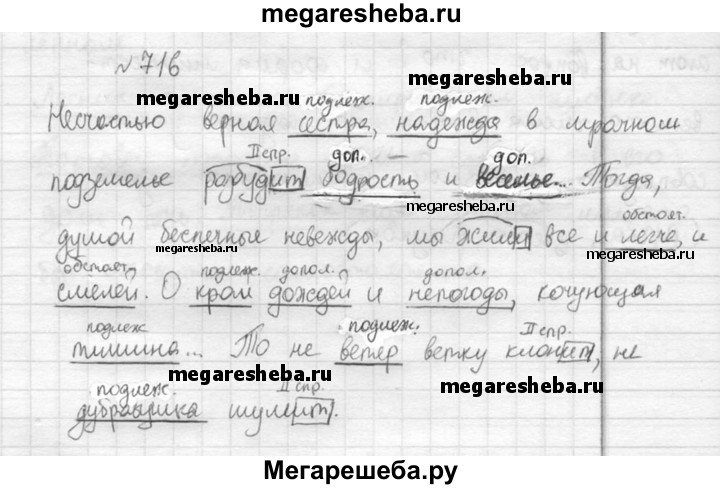 megaresheba.ru
№ 716
подлеж. подлеж.
megaresheba.ru megaresheba.ru
Несчастью верная сестра, надежда в мрачном
II спр. доп. доп.
подземелье разбудит бодрость и веселье... Тогда,
megaresheba.ru megaresheba.ru
обстоят.
душой беспечные невежды, мы жили все и легче, и
megaresheba.ru
обстоят. подлеж. допол. допол.
смелей. О кром дождей и непогоды, кочующая
подлеж подлеж. II спр.
тишина... То не ветер ветку клонит, не
megaresheba.ru megaresheba.ru
подлеж. II спр.
дубравушка шумит.
Мегарешеба.ру